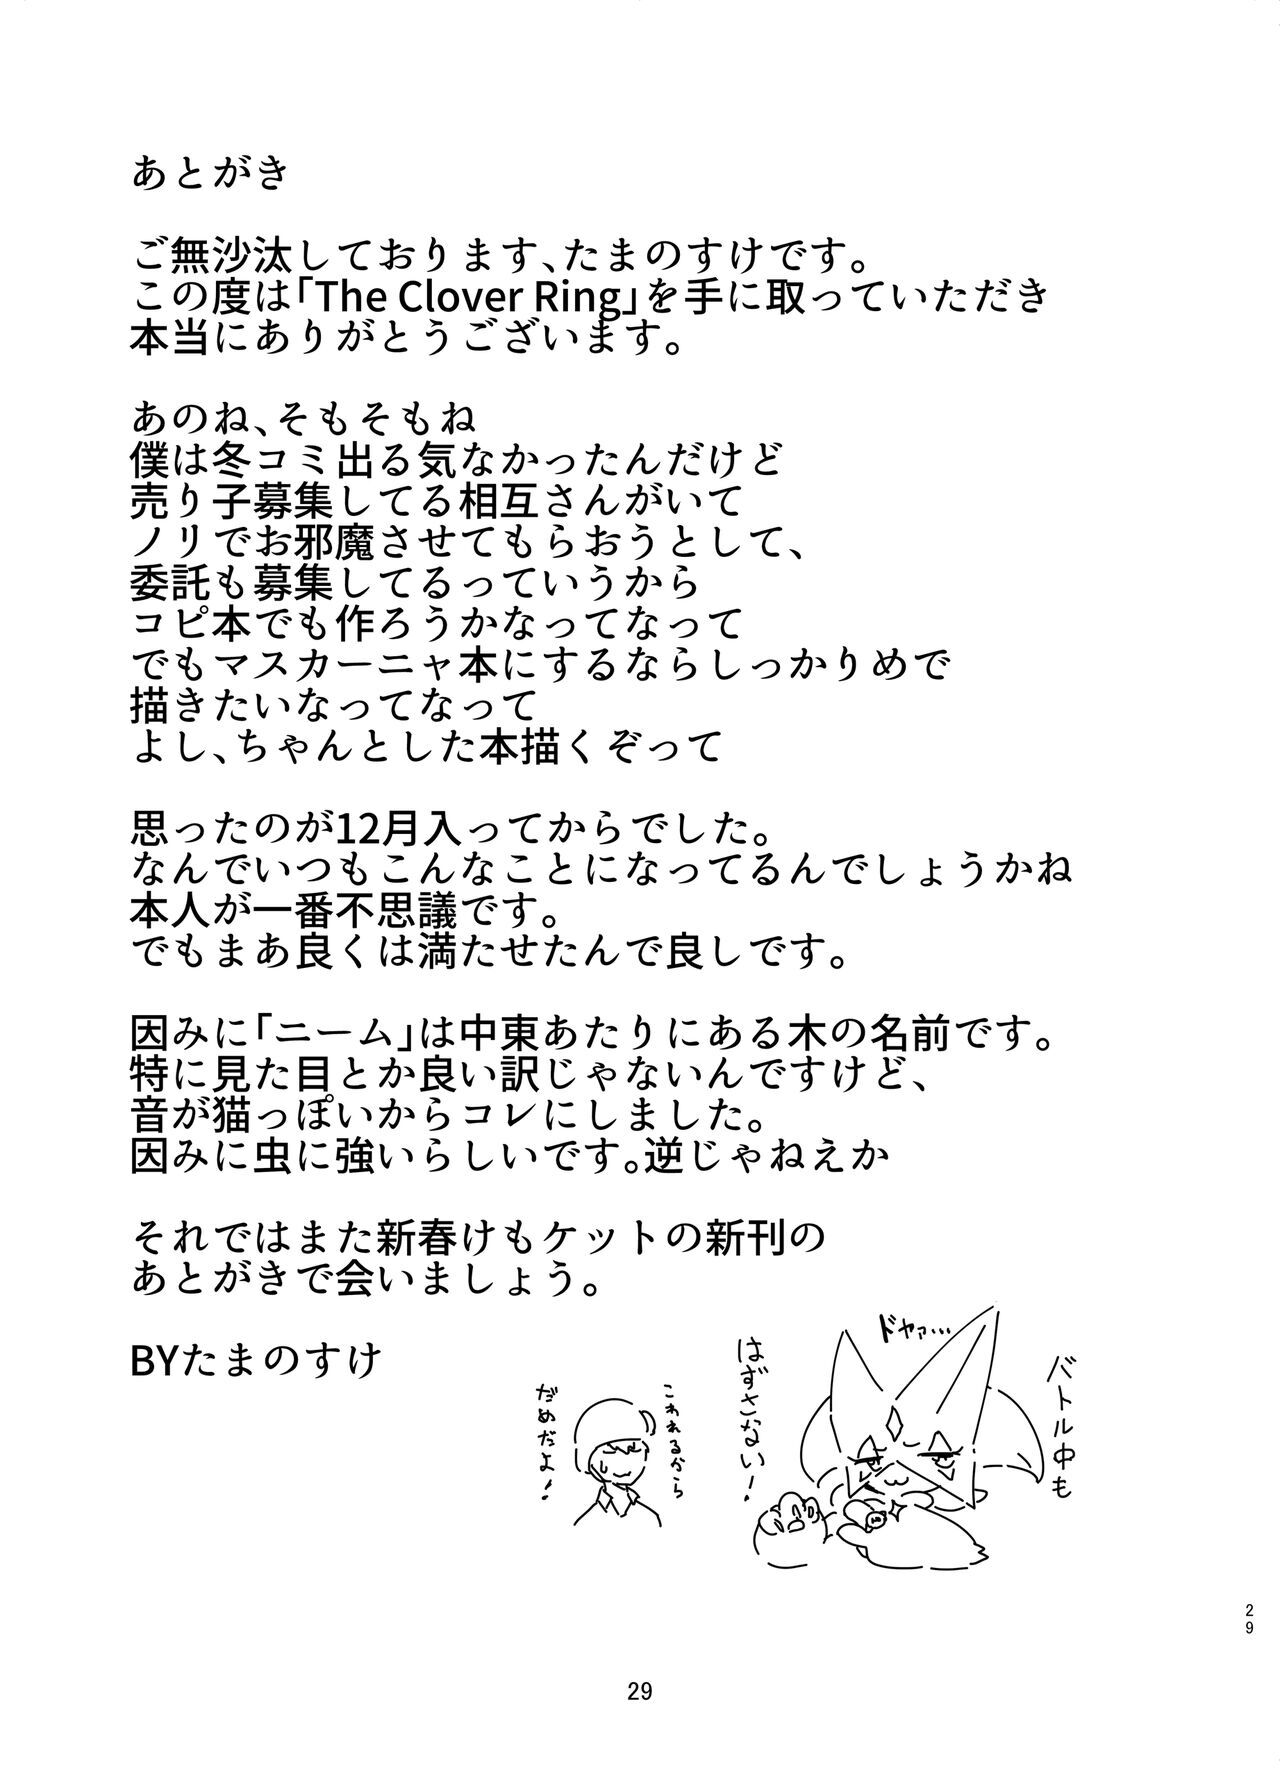 あとがき
ご無沙汰しております、たまのすけです。
この度は「The Clover Ring」を手に取っていただき
本当にありがとうございます。
あのね、そもそもね
僕は冬コミ出る気なかったんだけど
売り子募集してる相互さんがいて
ノリでお邪魔させてもらおうとして、
委託も募集してるっていうから
コピ本でも作ろうかなってなって
でもマスカーニャ本にするならしっかりめで
描きたいなってなって
よし、ちゃんとした本描くぞって
思ったのが12月入ってからでした。
なんでいつもこんなことになってるんでしょうかね
本人が一番不思議です。
でもまあ良くは満たせたんで良しです。
因みに「ニーム」は中東あたりにある木の名前です。
特に見た目とか良い訳じゃないんですけど、
音が猫っぽいからコレにしました。
因みに虫に強いらしいです。逆じゃねえか
それではまた新春けもケットの新刊の
あとがきで会いましょう。
BYたまのすけ
ドヤァ…
バトル中も
はずさない!
こわれるから
だめだよ!
29
29